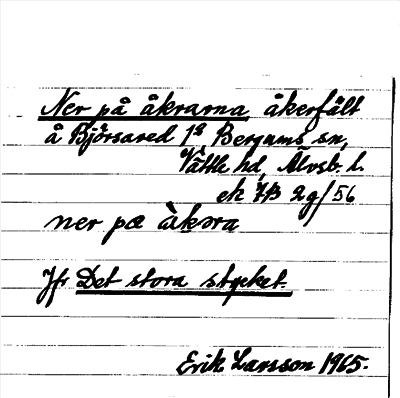 Ner på åkrarna, åkerfält
å Björsared 1⁸ Bergums sn,
Vättle hd, Älvsb. l.
ek 7B 2g/56
ner pæ àkəra
Jfr Det stora stycket.
Erik Larsson 1965.